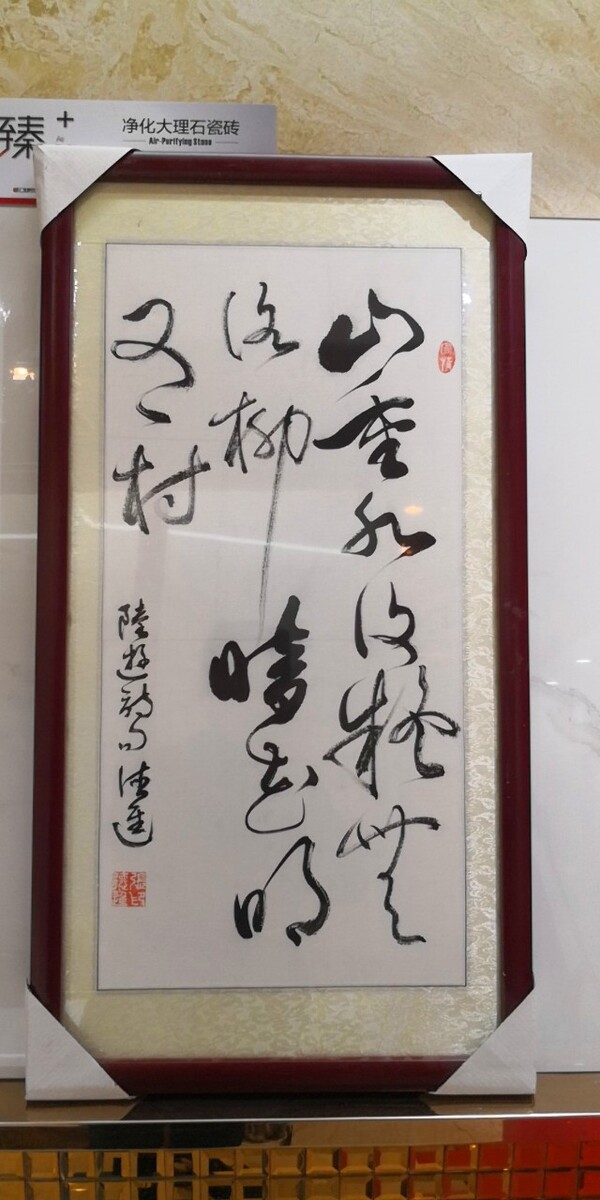 臻+
净化大理石瓷砖
Air-Purifying Stone
山重水復疑無
路柳暗花明
又一村
陸遊詩句